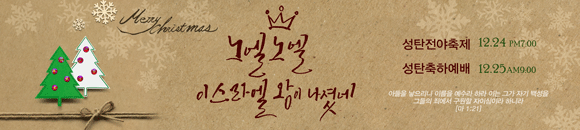 Merry
Christmas
노엘 노엘
이스라엘 왕이 나셨네
성탄전야축제 12.24 PM7:00
성탄축하예배 12.25 AM9:00
아들을 낳으리니 이름을 예수라 하라 이는 그가 자기 백성을
그들의 죄에서 구원할 자이심이라 하니라
[마 1:21]